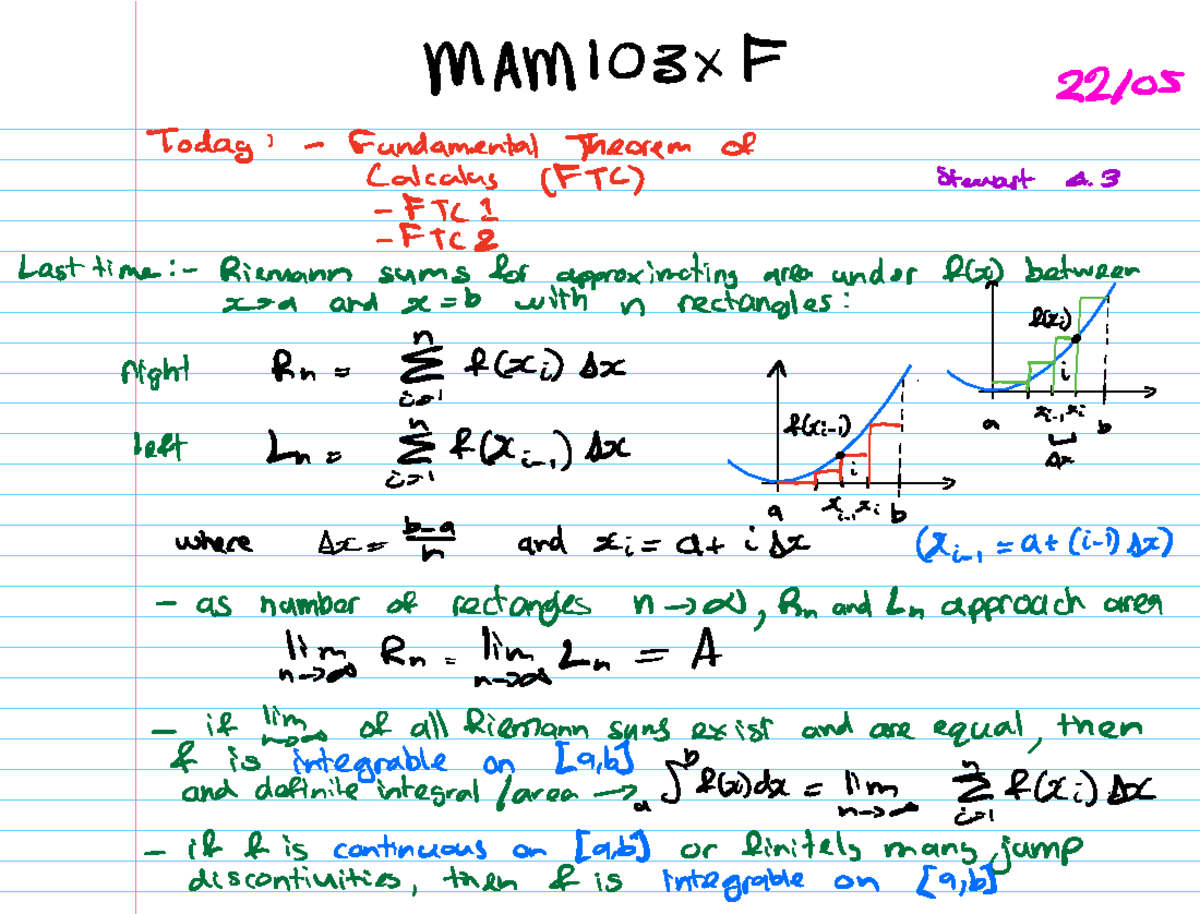 MAM103xF
22/05
Today: - Fundamental Theorem of
Calculus (FTC)
Stewart 4.3
- FTC 1
- FTC 2
Last time: - Riemann sums for approximating area under f(x) between
x=a and x=b with n rectangles:
right Rn = n∑i=1 f(xi) Δx
f(xi)
i
a xi-1 xi b
Δx
left Ln = n∑i=1 f(xi-1) Δx
f(xi-1)
i
a xi-1 xi b
where Δx = b-a/n and xi = a + i Δx (xi-1 = a + (i-1) Δx)
- as number of rectanges n→∞, Rn and Ln approach area
lim n→∞ Rn = lim n→∞ Ln = A
- if lim n→∞ of all Riemann sums exist and are equal, then
f is integrable on [a,b]
and definite integral / area → a∫b f(x)dx = lim n→∞ n∑i=1 f(xi) Δx
- if f is continuous on [a,b] or finitely many jump
discontinuities, then f is integrable on [a,b]